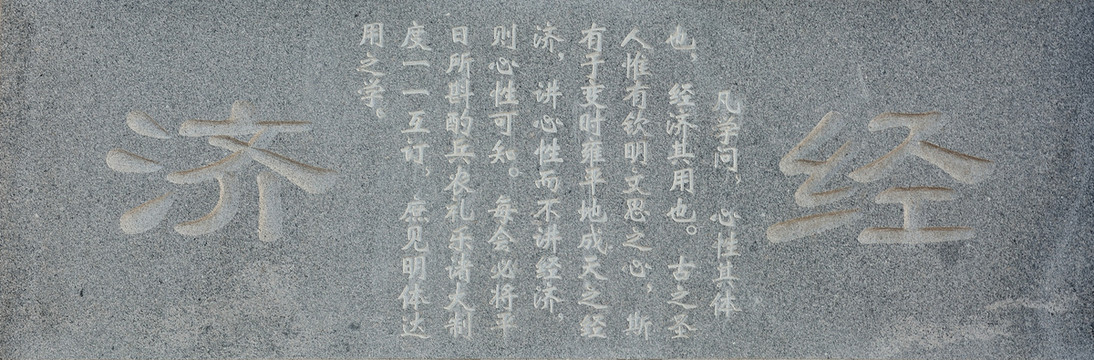 经
凡学问，心性其体
也，经济其用也。古之圣
人惟有钦明文思之心，斯
有于变时雍平地成天之经
济，讲心性而不讲经济，
则心性可知。每会必将平
日所斟酌兵农礼乐诸大制
度一一互订，庶见明体达
用之学。
济